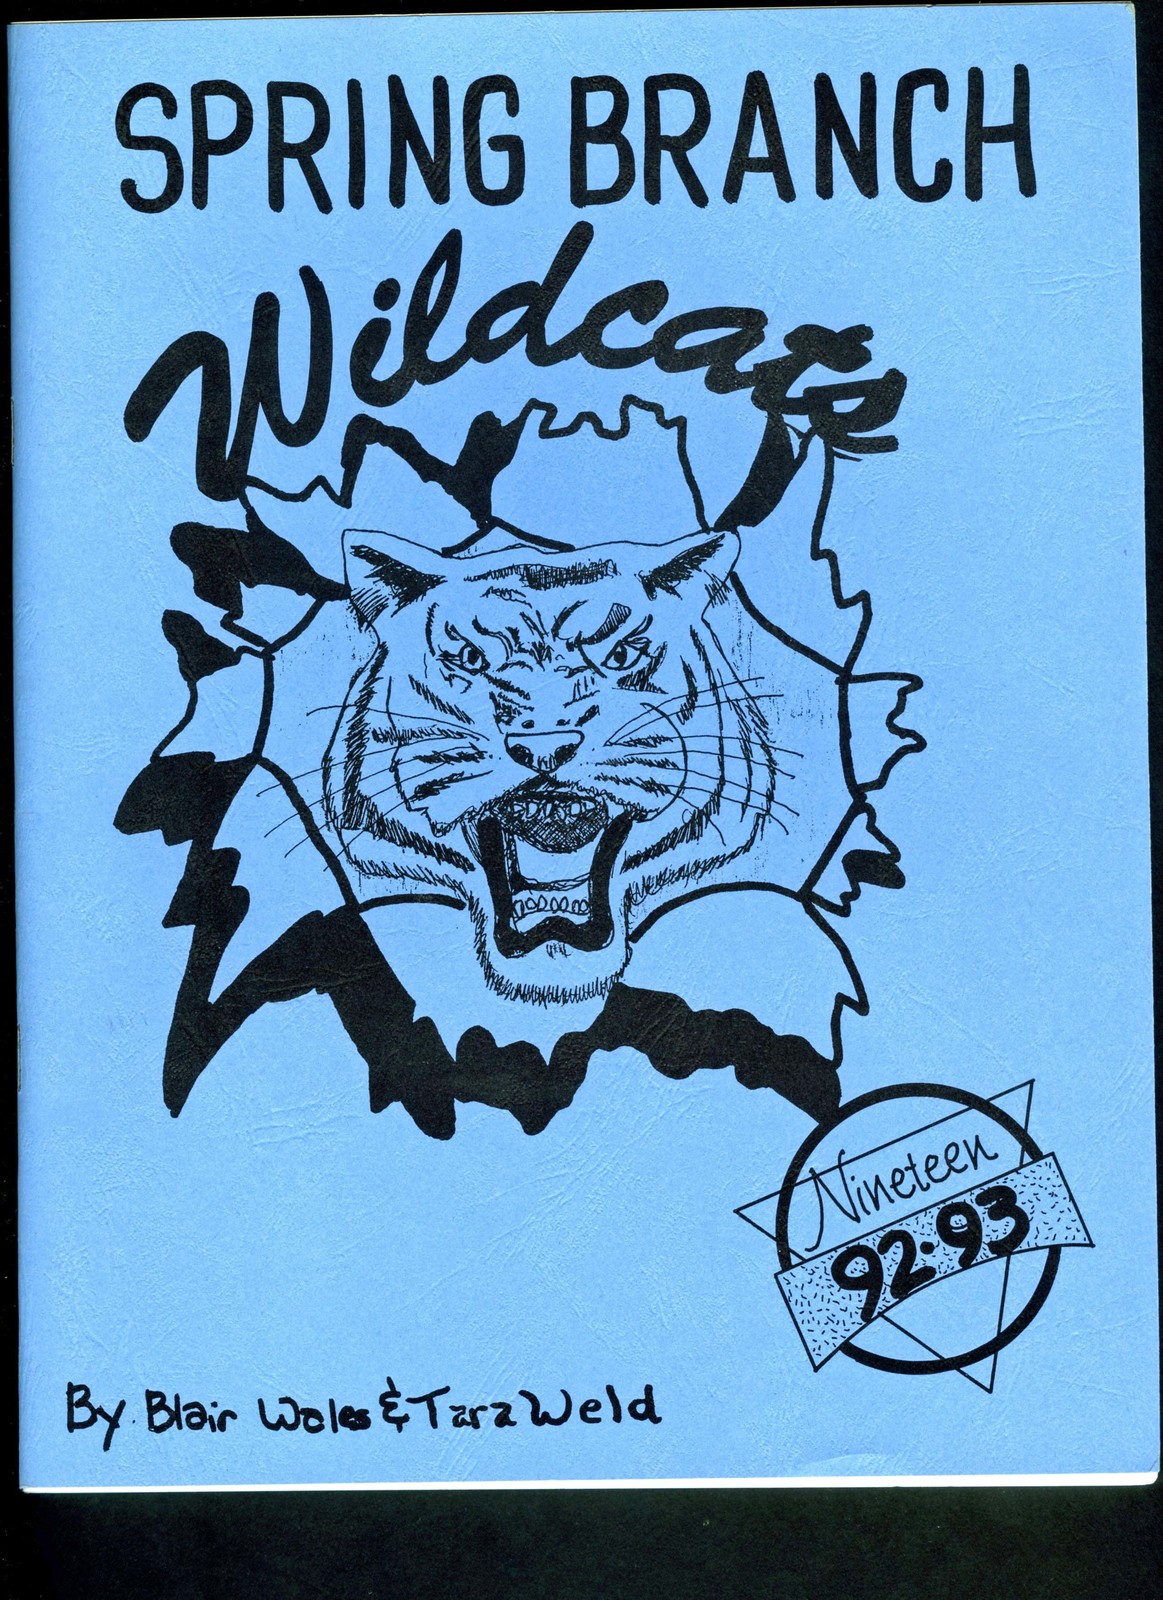 SPRING BRANCH
Wildcats
Nineteen
92·93
By Blair Wales & Tara Weld